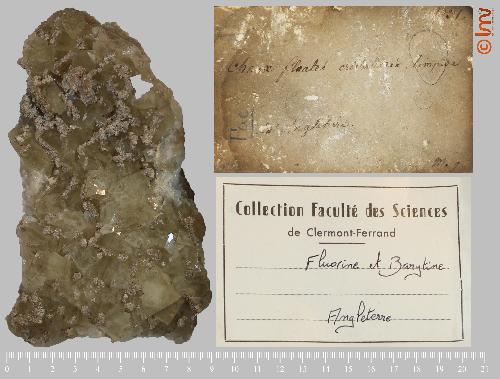 © lmv
Chaux fluatée cristallisée limpide
d'Angleterre.
Collection Faculté des Sciences
de Clermont-Ferrand
Fluorine et Barytine
Angleterre
0 1 2 3 4 5 6 7 8 9 10 11 12 13 14 15 16 17 18 19 20 21